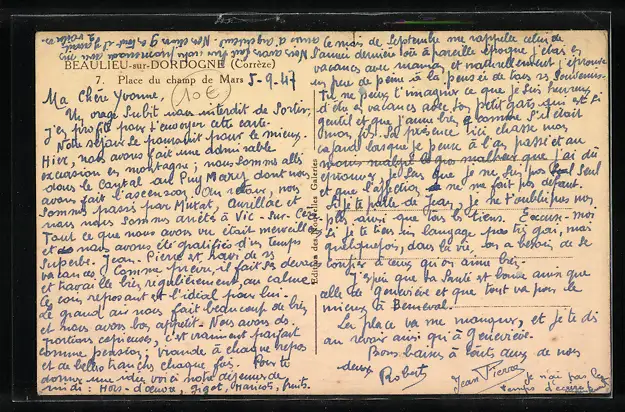 BEAULIEU-sur-DORDOGNE (Corrèze)
7. Place du champ de Mars 5-9-47
10€
Ma Chère Yvonne,
Un orage subit nous interdit de sortir,
j'en profite pour t'envoyer cette carte.
Notre séjour se poursuit pour le mieux.
Hier, nous avons fait une admirable
excursion en montagne; nous sommes allés
dans le Cantal au Puy Mary dont nous
avons fait l'ascension. Au retour, nous
sommes passés par Murat, Aurillac et
nous nous sommes arrêtés à Vic-sur-Cère
Tout ce que nous avons vu était merveilleux
et nous avons été gratifiés d'un temps
superbe. Jean-Pierre est ravi de ses
vacances. Comme prévu, il fait ses devoirs
et travaille très régulièrement, au calme
Ce coin reposant est l'idéal pour lui.
Le grand air nous fait beaucoup de bien
et nous avons bon appétit. Nous avons des
portions copieuses, c'est vraiment parfait
comme pension, viande à chaque repas
et de belles tranches chaque fois. Pour te
donner une idée, voici notre déjeuner de
midi: Hors-d'œuvre, gigot, haricots, fruits.
Editions des Nouvelles Galeries
Ce mois de Septembre me rappelle celui de
l'année dernière où à pareille époque j'étais en
vacances avec maman et naturellement j'éprouve
un peu de peine à la pensée de tous ces souvenirs.
Tu ne peux t'imaginer ce que je suis heureux
d'être en vacances avec ton petit gars qui est si
gentil et que j'aime bien comme s'il était
mon fils. Sa présence ici chasse mon
cafard lorsque je pense à l'an passé et au
malheur que j'ai dû
éprouver. Je sens que je ne suis pas seul
et que l'affection ne me fait pas défaut.
Si je te parle de Jean, je ne t'oublie pas non
plus ainsi que tous les tiens. Excuse-moi
si je te tiens un langage pas très gai, mais
quelquefois, dans la vie, on a besoin de se
confier à ceux qu'on aime bien.
J'espère que ta santé est bonne ainsi que
celle de Geneviève et que tout va pour le
mieux à
La place va me manquer, et je te dis
au revoir ainsi qu'à Geneviève.
Bons baisers à toutes deux de nous
deux
Robert
Jean Pierre
je n'ai pas le
temps d'écrire